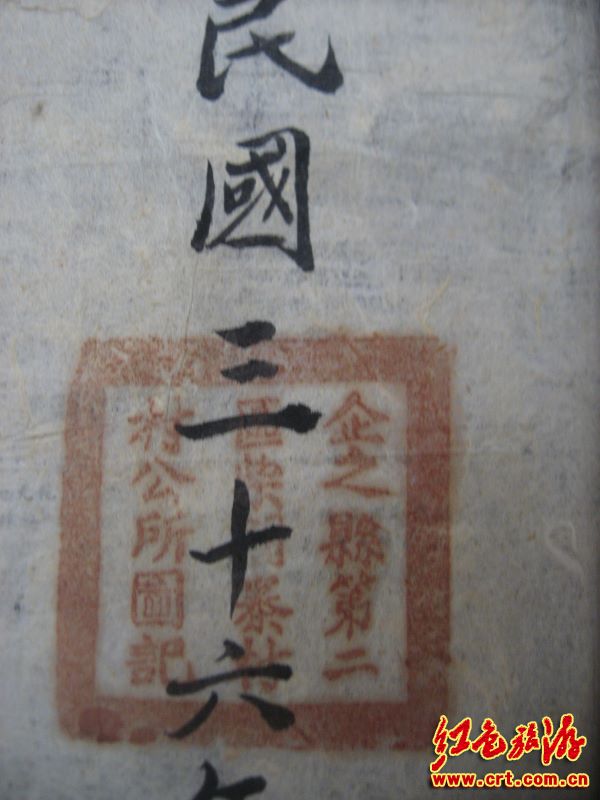 民國三十六
企之縣第二
區
村公所圖記
红色旅游
www.crt.com.cn